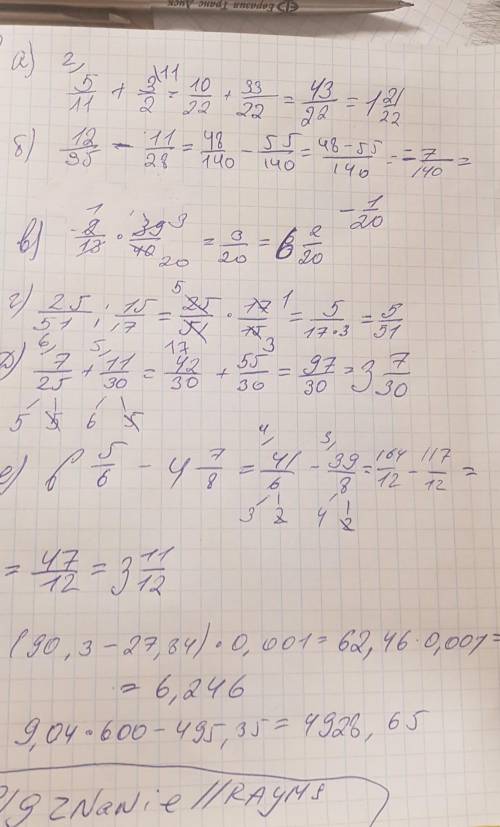 Евразия Транс Диск
а) 2, 5/11 + 3/2 11 = 10/22 + 33/22 = 43/22 = 1 21/22
б) 12/35 - 11/28 = 48/140 - 55/140 = 48-55/140 = -7/140 =
- 1/20
в) 2/13 · 39/40 = 3/20 = 6 2/20
г) 25/51 : 15/17 = 25/51 · 17/15 = 5/17·3 = 5/51
д) 7/25 + 11/30 = 42/30 + 55/30 = 97/30 = 3 7/30
5 5 6 5
е) 6 5/6 - 4 7/8 = 41/6 - 39/8 = 164/12 - 117/12 =
3 2 4 2
= 47/12 = 3 11/12
(90,3-27,84)·0,001=62,46·0,001=
= 6,246
9,04·600-495,35=4928,65
ZNANIE//RAYMS